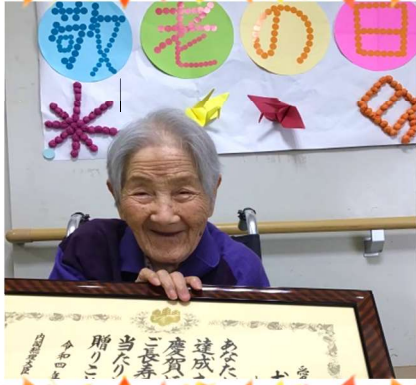 敬老の日
あなた
達成
慶賀
ご長寿
当たり
贈りこ
令和四年
内閣総理大臣